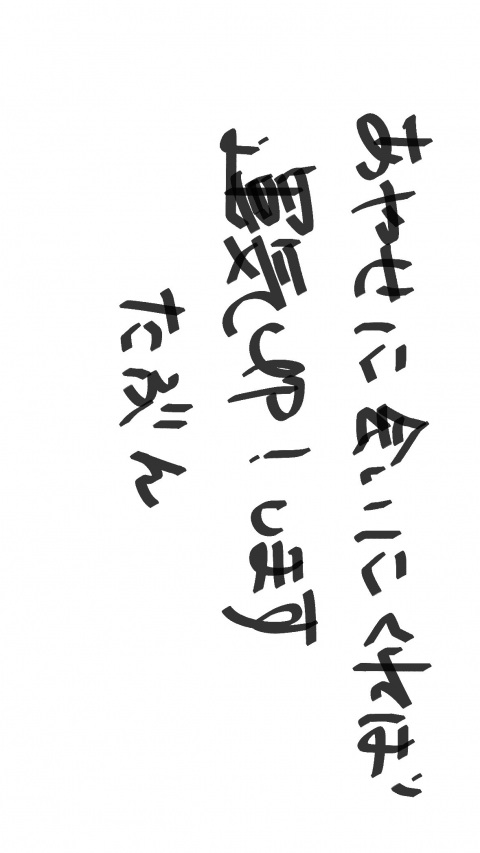 あやせに会いにくれば
運気up!します
たぶん